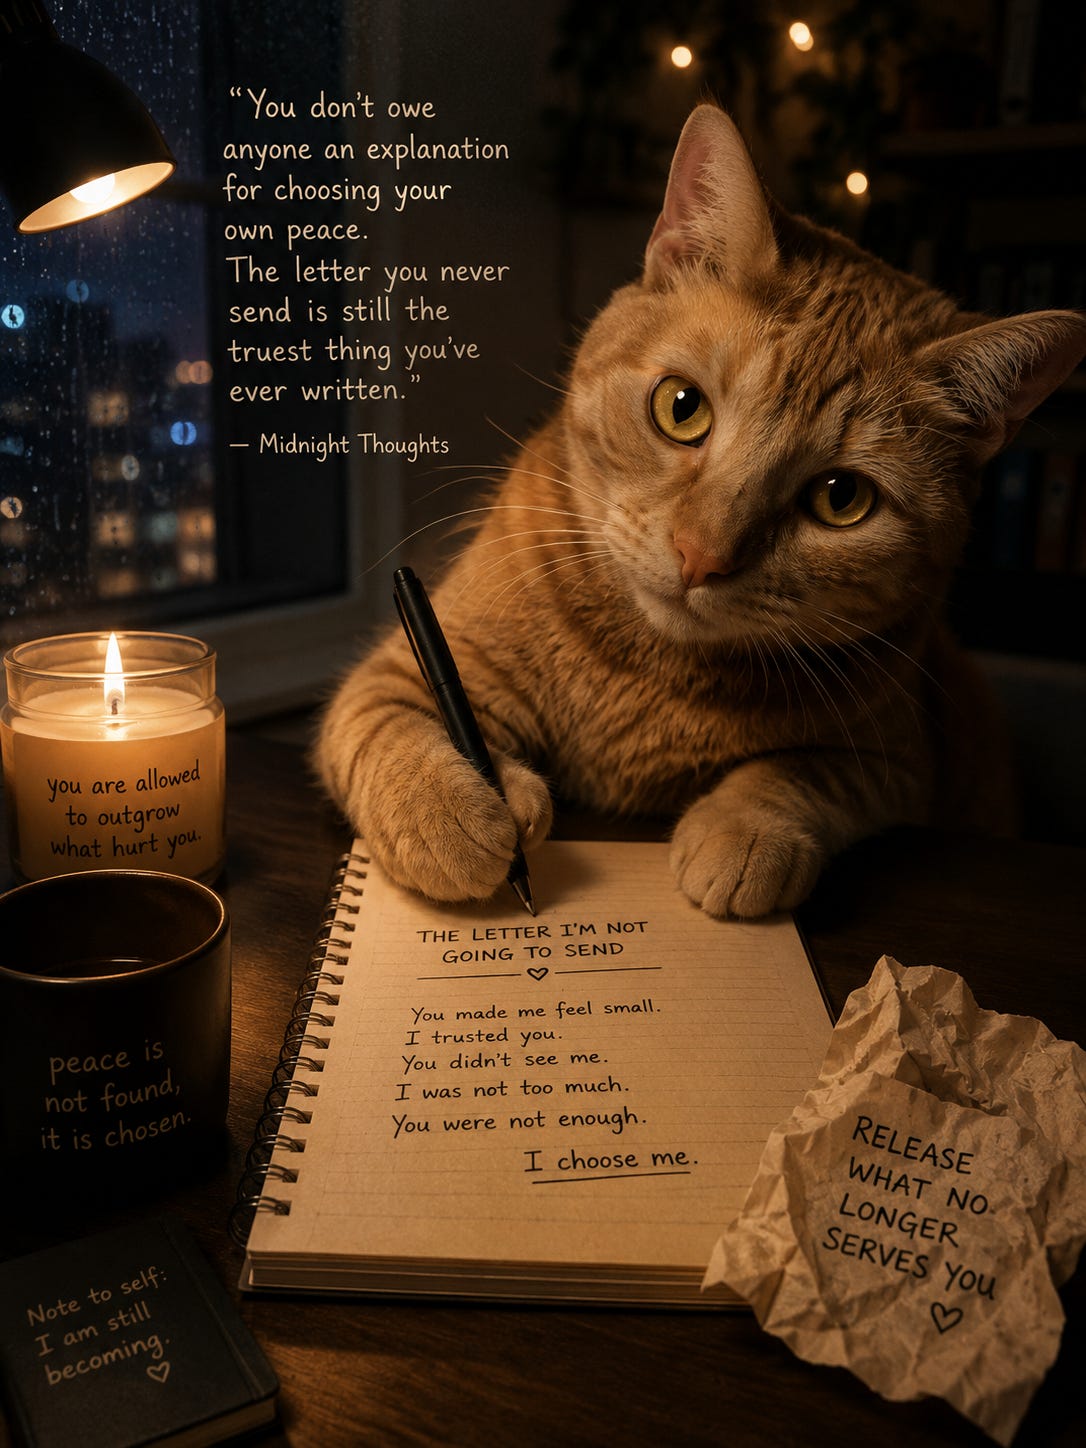 “You don't owe
anyone an explanation
for choosing your
own peace.
The letter you never
send is still the
truest thing you've
ever written.”
— Midnight Thoughts
you are allowed
to outgrow
what hurt you.
peace is
not found,
it is chosen.
THE LETTER I'M NOT
GOING TO SEND
You made me feel small.
I trusted you.
You didn't see me.
I was not too much.
You were not enough.
I choose me.
RELEASE
WHAT NO
LONGER
SERVES YOU
Note to self:
I am still
becoming.